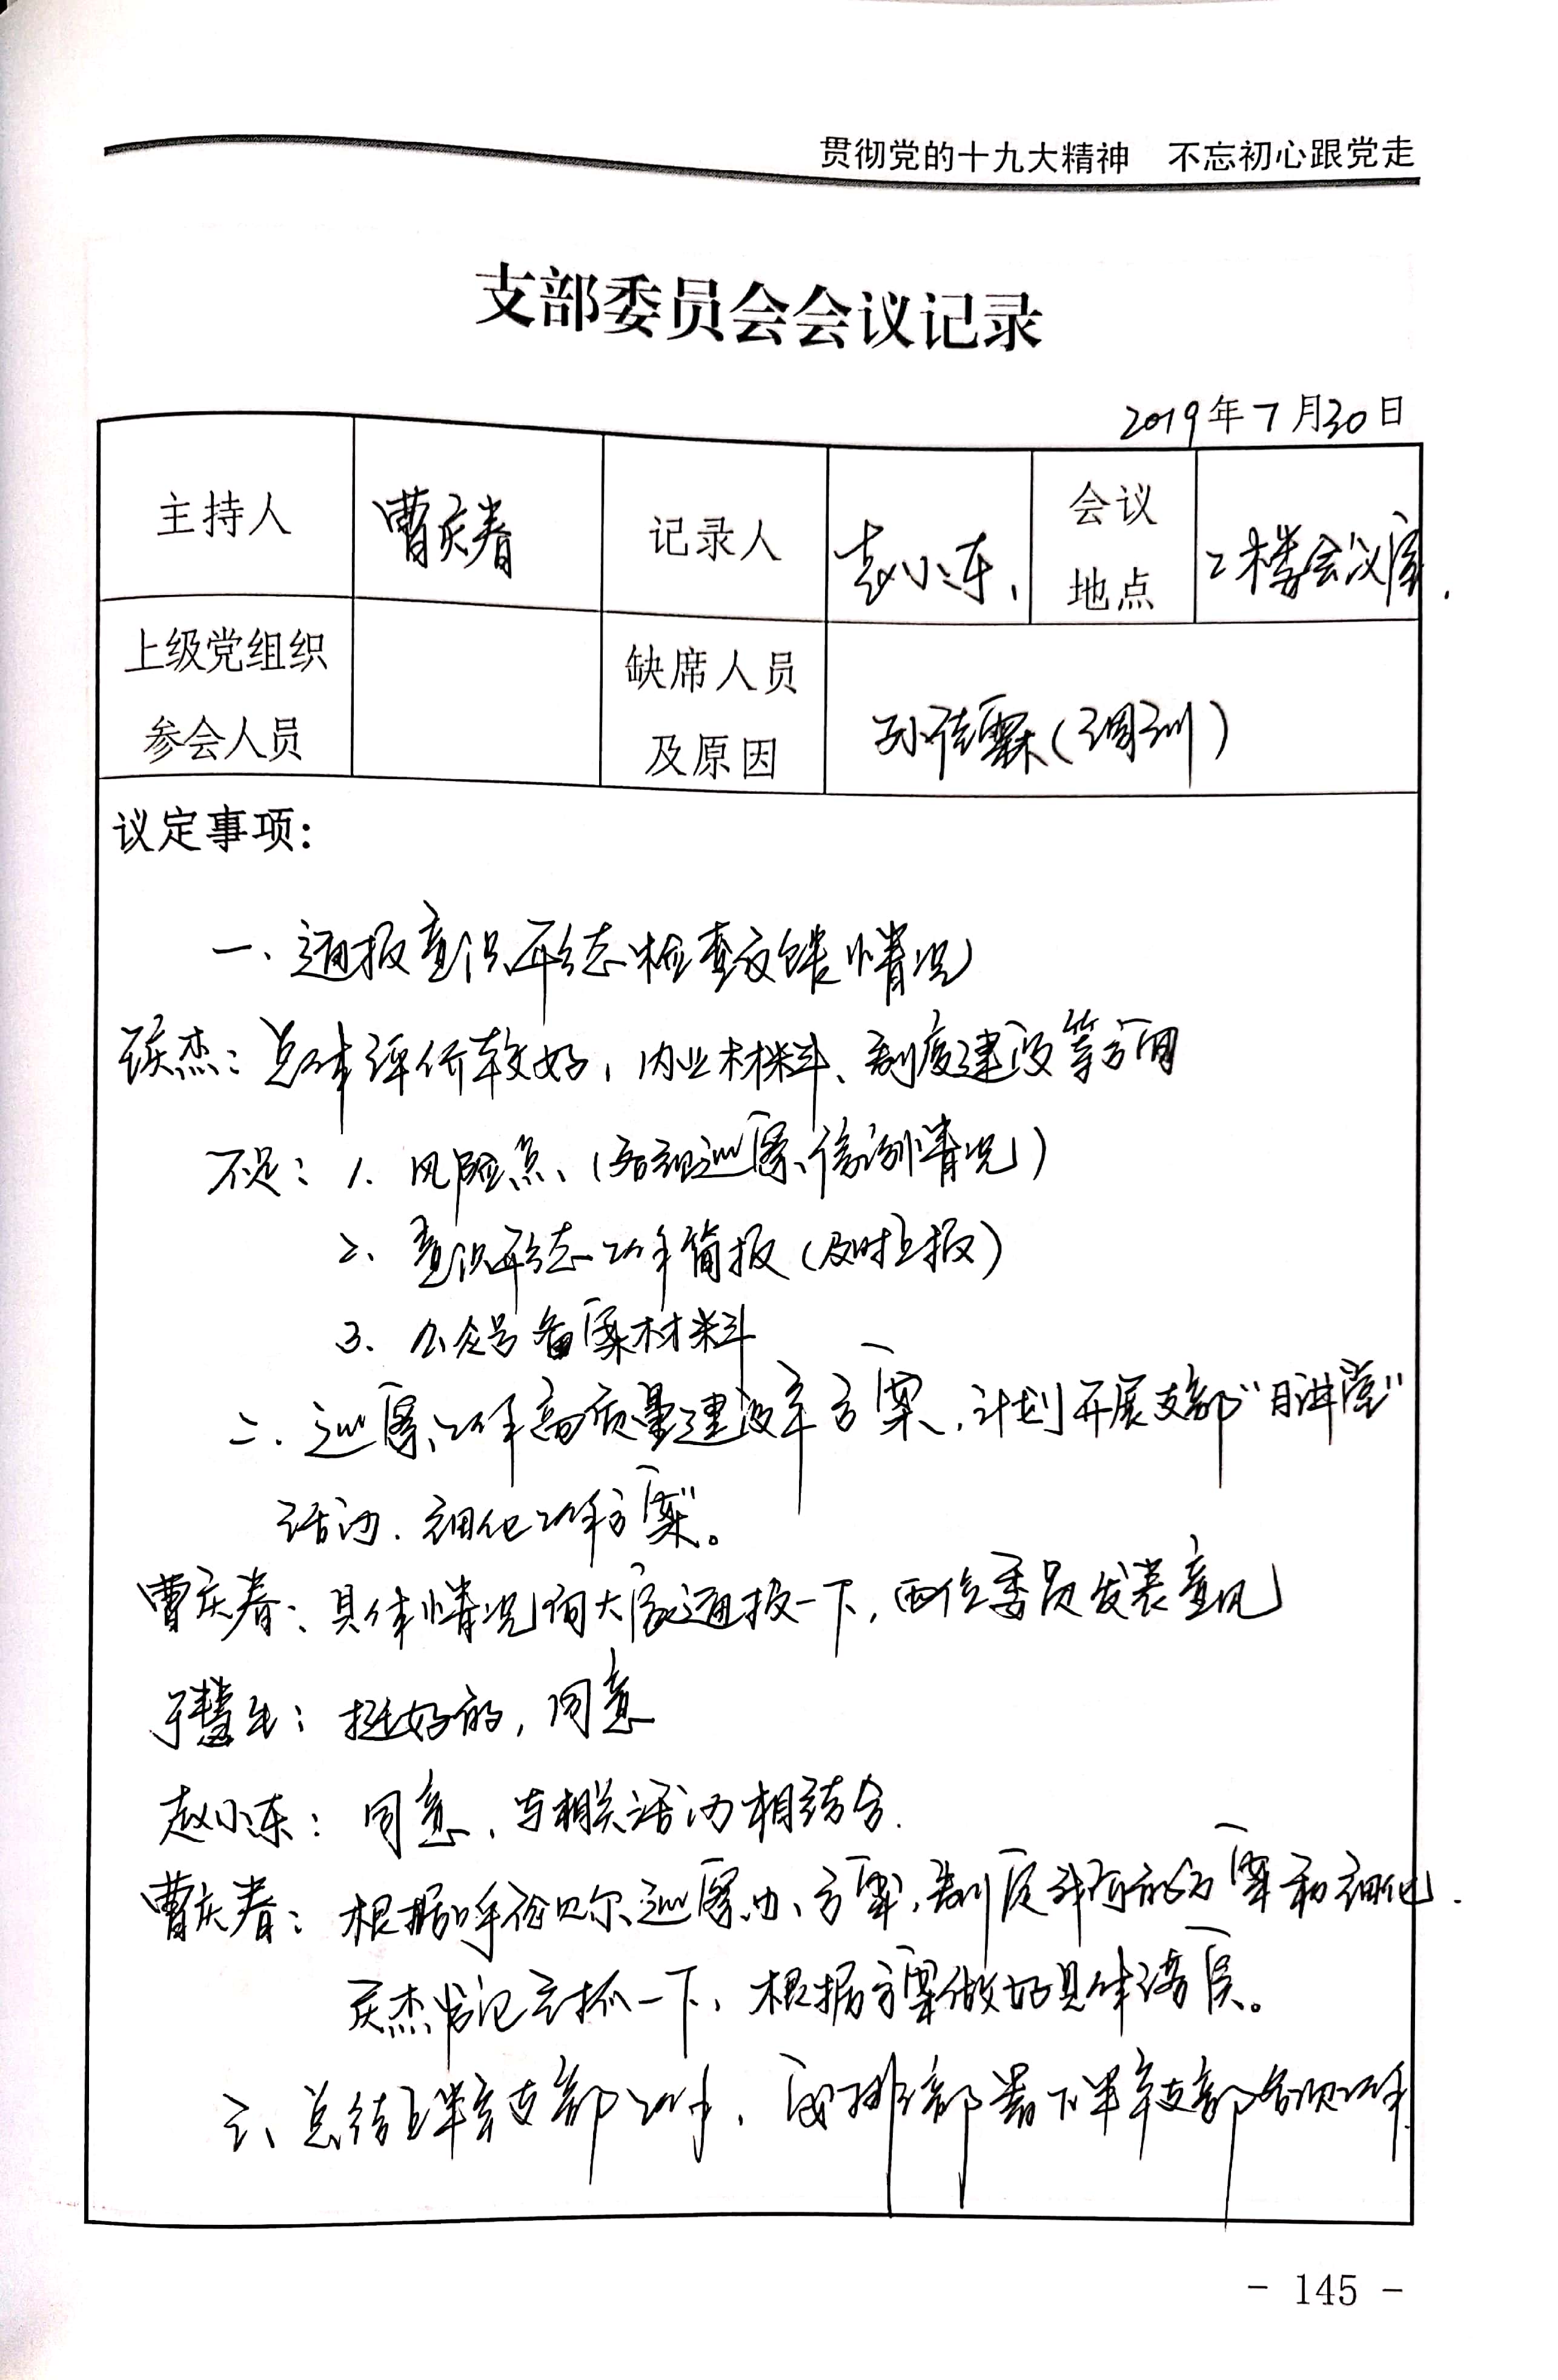 贯彻党的十九大精神 不忘初心跟党走
支部委员会会议记录
2019年7月30日
主持人 曹庆春 记录人 赵小东、 会议地点 二楼会议室.
上级党组织参会人员 缺席人员及原因 孙佳霖(调训)
议定事项:
一、通报意识形态检查反馈情况
庆杰:总体评价较好,内业材料、制度建设等方面
不足:1、风险点、(巡察、情况)
2、意识形态工作简报(及时上报)
3、公众号备案材料
二、巡察工作高质量建设年方案,计划开展支部“日讲堂”
活动、细化工作方案。
曹庆春:具体情况向大家通报一下,两位委员发表意见
于慧生:挺好的,同意
赵小东:同意、与相关活动相结合.
曹庆春:根据呼伦贝尔巡察办、方案,制定我们的方案和细化.
庆杰书记主抓一下、根据方案做好具体落实。
三、总结上半年支部工作、安排部署下半年支部各项工作
- 145 -